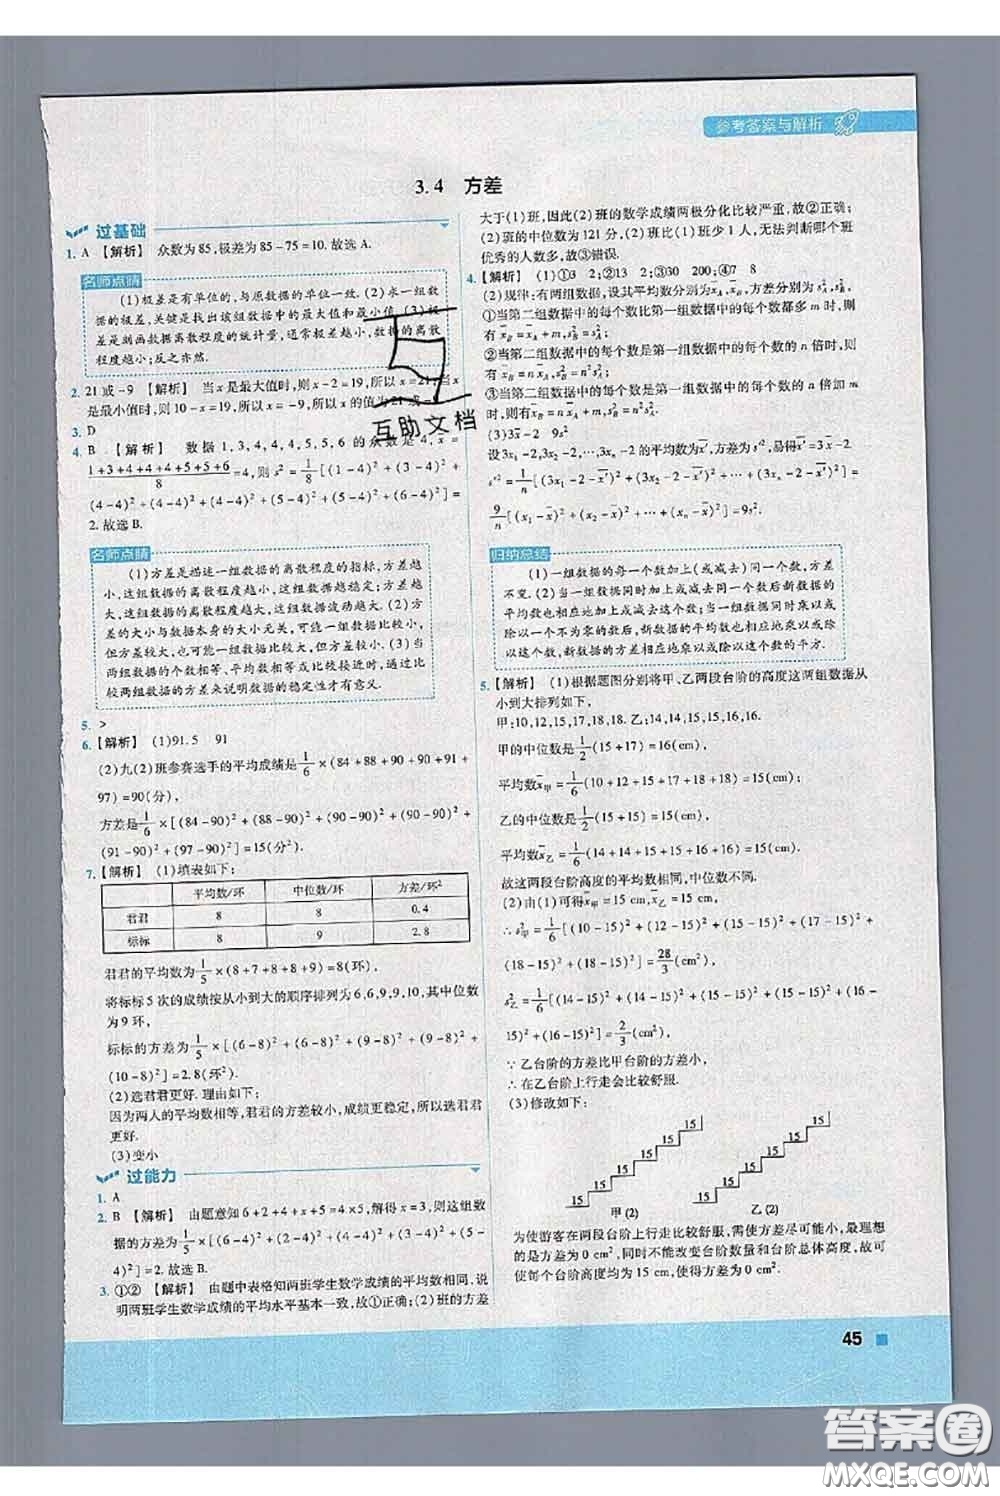 参考答案与解析
3.4 方差
过基础
1. A 【解析】 众数为85,极差为85-75=10.故选A.
名师点睛
(1)极差是有单位的,与原数据的单位一致.(2)求一组数
据的极差,关键是找出该组数据中的最大值和最小值.(3)极
差是刻画数据离散程度的统计量,通常极差越小,数据的离散
程度越小;反之亦然.
2. 21或-9 【解析】 当x是最大值时,则x-2=19,所以x=21;当x
是最小值时,则10-x=19,所以x=-9,所以x的值为21或
3. D
4. B 【解析】 数据1,3,4,4,4,5,5,6的众数是4,x̄=
(1+3+4+4+4+5+5+6)/8=4,则s²=1/8[(1-4)²+(3-4)²+
(4-4)²+(4-4)²+(4-4)²+(5-4)²+(5-4)²+(6-4)²]=
2.故选B.
名师点睛
(1)方差是描述一组数据的离散程度的指标,方差越
小,这组数据的离散程度越小,这组数据越稳定;方差越
大,这组数据的离散程度越大,这组数据波动越大.(2)方
差的大小与数据本身的大小无关,可能一组数据比较小,
但方差较大,也可能一组数据比较大,但方差较小.(3)当
两组数据的个数相等、平均数相等或比较接近时,通过比
较两组数据的方差来说明数据的稳定性才有意义.
5. >
6. 【解析】 (1)91.5 91
(2)九(2)班参赛选手的平均成绩是1/6×(84+88+90+90+91+
97)=90(分),
方差是1/6×[(84-90)²+(88-90)²+(90-90)²+(90-90)²+
(91-90)²+(97-90)²]=15(分²).
7. 【解析】 (1)填表如下:
平均数/环 中位数/环 方差/环²
君君 8 8 0.4
标标 8 9 2.8
君君的平均数为1/5×(8+7+8+8+9)=8(环),
将标标5次的成绩按从小到大的顺序排列为6,6,9,9,10,其中位数
为9环,
标标的方差为1/5×[(6-8)²+(6-8)²+(9-8)²+(9-8)²+
(10-8)²]=2.8(环²).
(2)选君君更好.理由如下:
因为两人的平均数相等,君君的方差较小,成绩更稳定,所以选君君
更好.
(3)变小
过能力
1. A
2. B 【解析】 由题意知6+2+4+x+5=4×5,解得x=3,则这组数
据的方差为1/5×[(6-4)²+(2-4)²+(4-4)²+(3-4)²+(5-
4)²]=2.故选B.
3. ①② 【解析】 由题中表格知两班学生数学成绩的平均数相同,说
明两班学生数学成绩的平均水平基本一致,故①正确;(2)班的方差
大于(1)班,因此(2)班的数学成绩两极分化比较严重,故②正确;
(2)班的中位数为121分,(2)班比(1)班少1人,无法判断哪个班
优秀的人数多,故③错误.
4. 【解析】 (1)①3 2;②13 2;③30 200;④7 8
(2)规律:有两组数据,设其平均数分别为x̄A,x̄B,方差分别为s²A,s²B,
①当第二组数据中的每个数比第一组数据中的每个数都多m时,则
有x̄B=x̄A+m,s²B=s²A;
②当第二组数据中的每个数是第一组数据中的每个数的n倍时,则
有x̄B=nx̄A,s²B=n²s²A;
③当第二组数据中的每个数是第一组数据中的每个数的n倍加m
时,则有x̄B=nx̄A+m,s²B=n²s²A.
(3)3x̄-2 9s²
设3x₁-2,3x₂-2,…,3xₙ-2的平均数为x̄',方差为s'²,易得x̄'=3x̄-2,
s'²=1/n[(3x₁-2-x̄')²+(3x₂-2-x̄')²+…+(3xₙ-2-x̄')²]=
9/n[(x₁-x̄)²+(x₂-x̄)²+…+(xₙ-x̄)²]=9s².
归纳总结
(1)一组数据的每一个数加上(或减去)同一个数,方差
不变.(2)当一组数据同时加上或减去一个数后新数据的
平均数也相应地加上或减去这个数;当同时乘以或
除以一个不为零的数后,新数据的平均数也相应地乘以或
除以这个数,新数据的方差相应地乘以或除以这个数的平方.
5. 【解析】 (1)根据题图分别将甲、乙两段台阶的高度这两组数据从
小到大排列如下,
甲:10,12,15,17,18,18.乙:14,14,15,15,16,16.
甲的中位数是1/2(15+17)=16(cm),
平均数x̄甲=1/6(10+12+15+17+18+18)=15(cm);
乙的中位数是1/2(15+15)=15(cm),
平均数x̄乙=1/6(14+14+15+15+16+16)=15(cm).
故这两段台阶高度的平均数相同,中位数不同.
(2)由(1)可得x̄甲=15 cm,x̄乙=15 cm,
∴s²甲=1/6[(10-15)²+(12-15)²+(15-15)²+(17-15)²+
(18-15)²+(18-15)²]=28/3(cm²),
s²乙=1/6[(14-15)²+(14-15)²+(15-15)²+(15-15)²+(16-
15)²+(16-15)²]=2/3(cm²).
∵乙台阶的方差比甲台阶的方差小,
∴在乙台阶上行走会比较舒服.
(3)修改如下:
15 15 15 15 15 15
甲(2)
15 15 15 15 15 15
乙(2)
为使游客在两段台阶上行走比较舒服,需使方差尽可能小,最理想
的是方差为0 cm²,同时不能改变台阶数量和台阶总体高度,故可
使每个台阶高度均为15 cm,使得方差为0 cm².
45
互助文档
答案圈
MXQE.COM